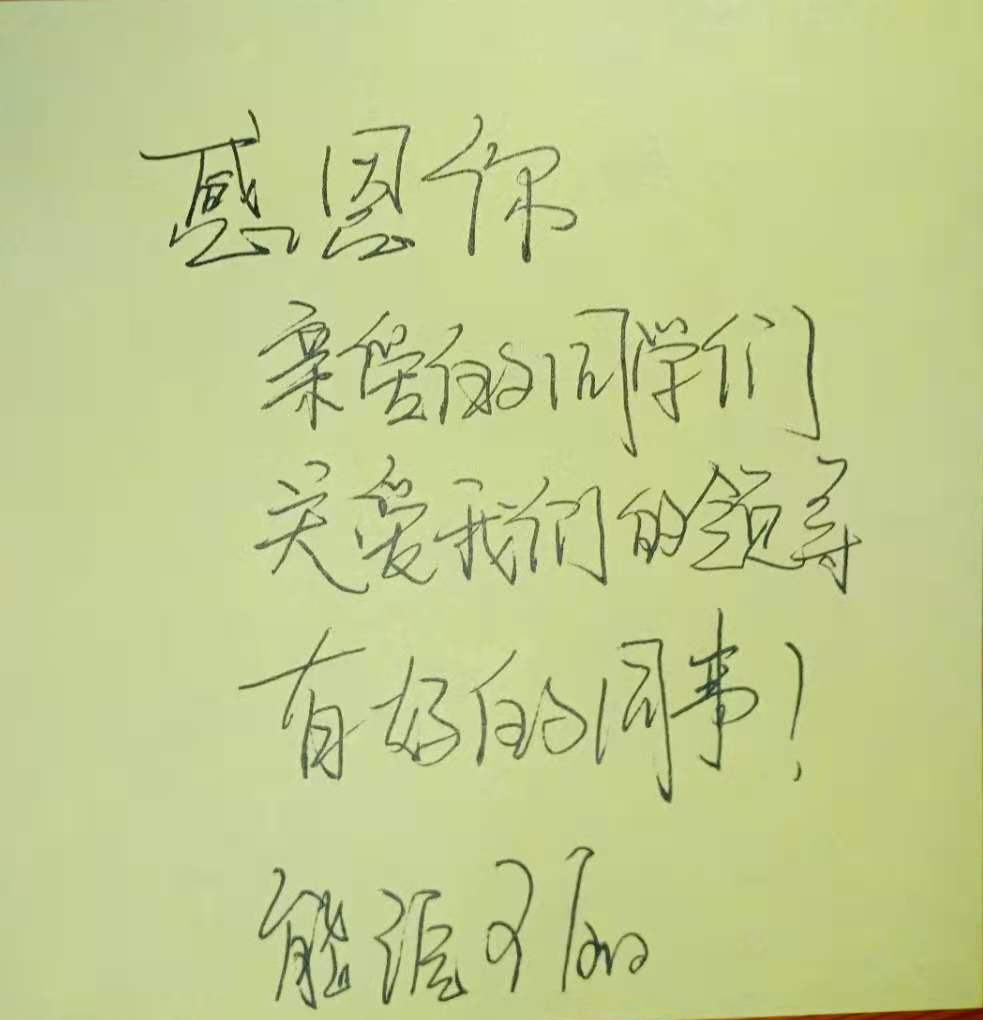 感恩你
亲爱的同学们
关爱我们的领导
有好的同事!
能源